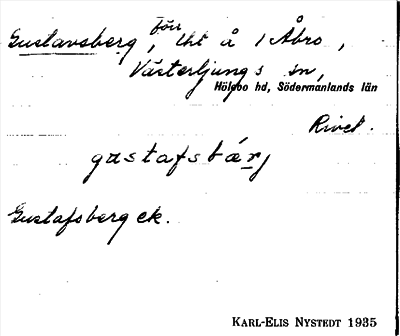 Gustavsberg, förr lht å 1 Åbro,
Västerljungs sn,
Hölebo hd, Södermanlands län
Rivet.
gustafsbärj
Gustafsberg ek.
KARL-ELIS NYSTEDT 1935